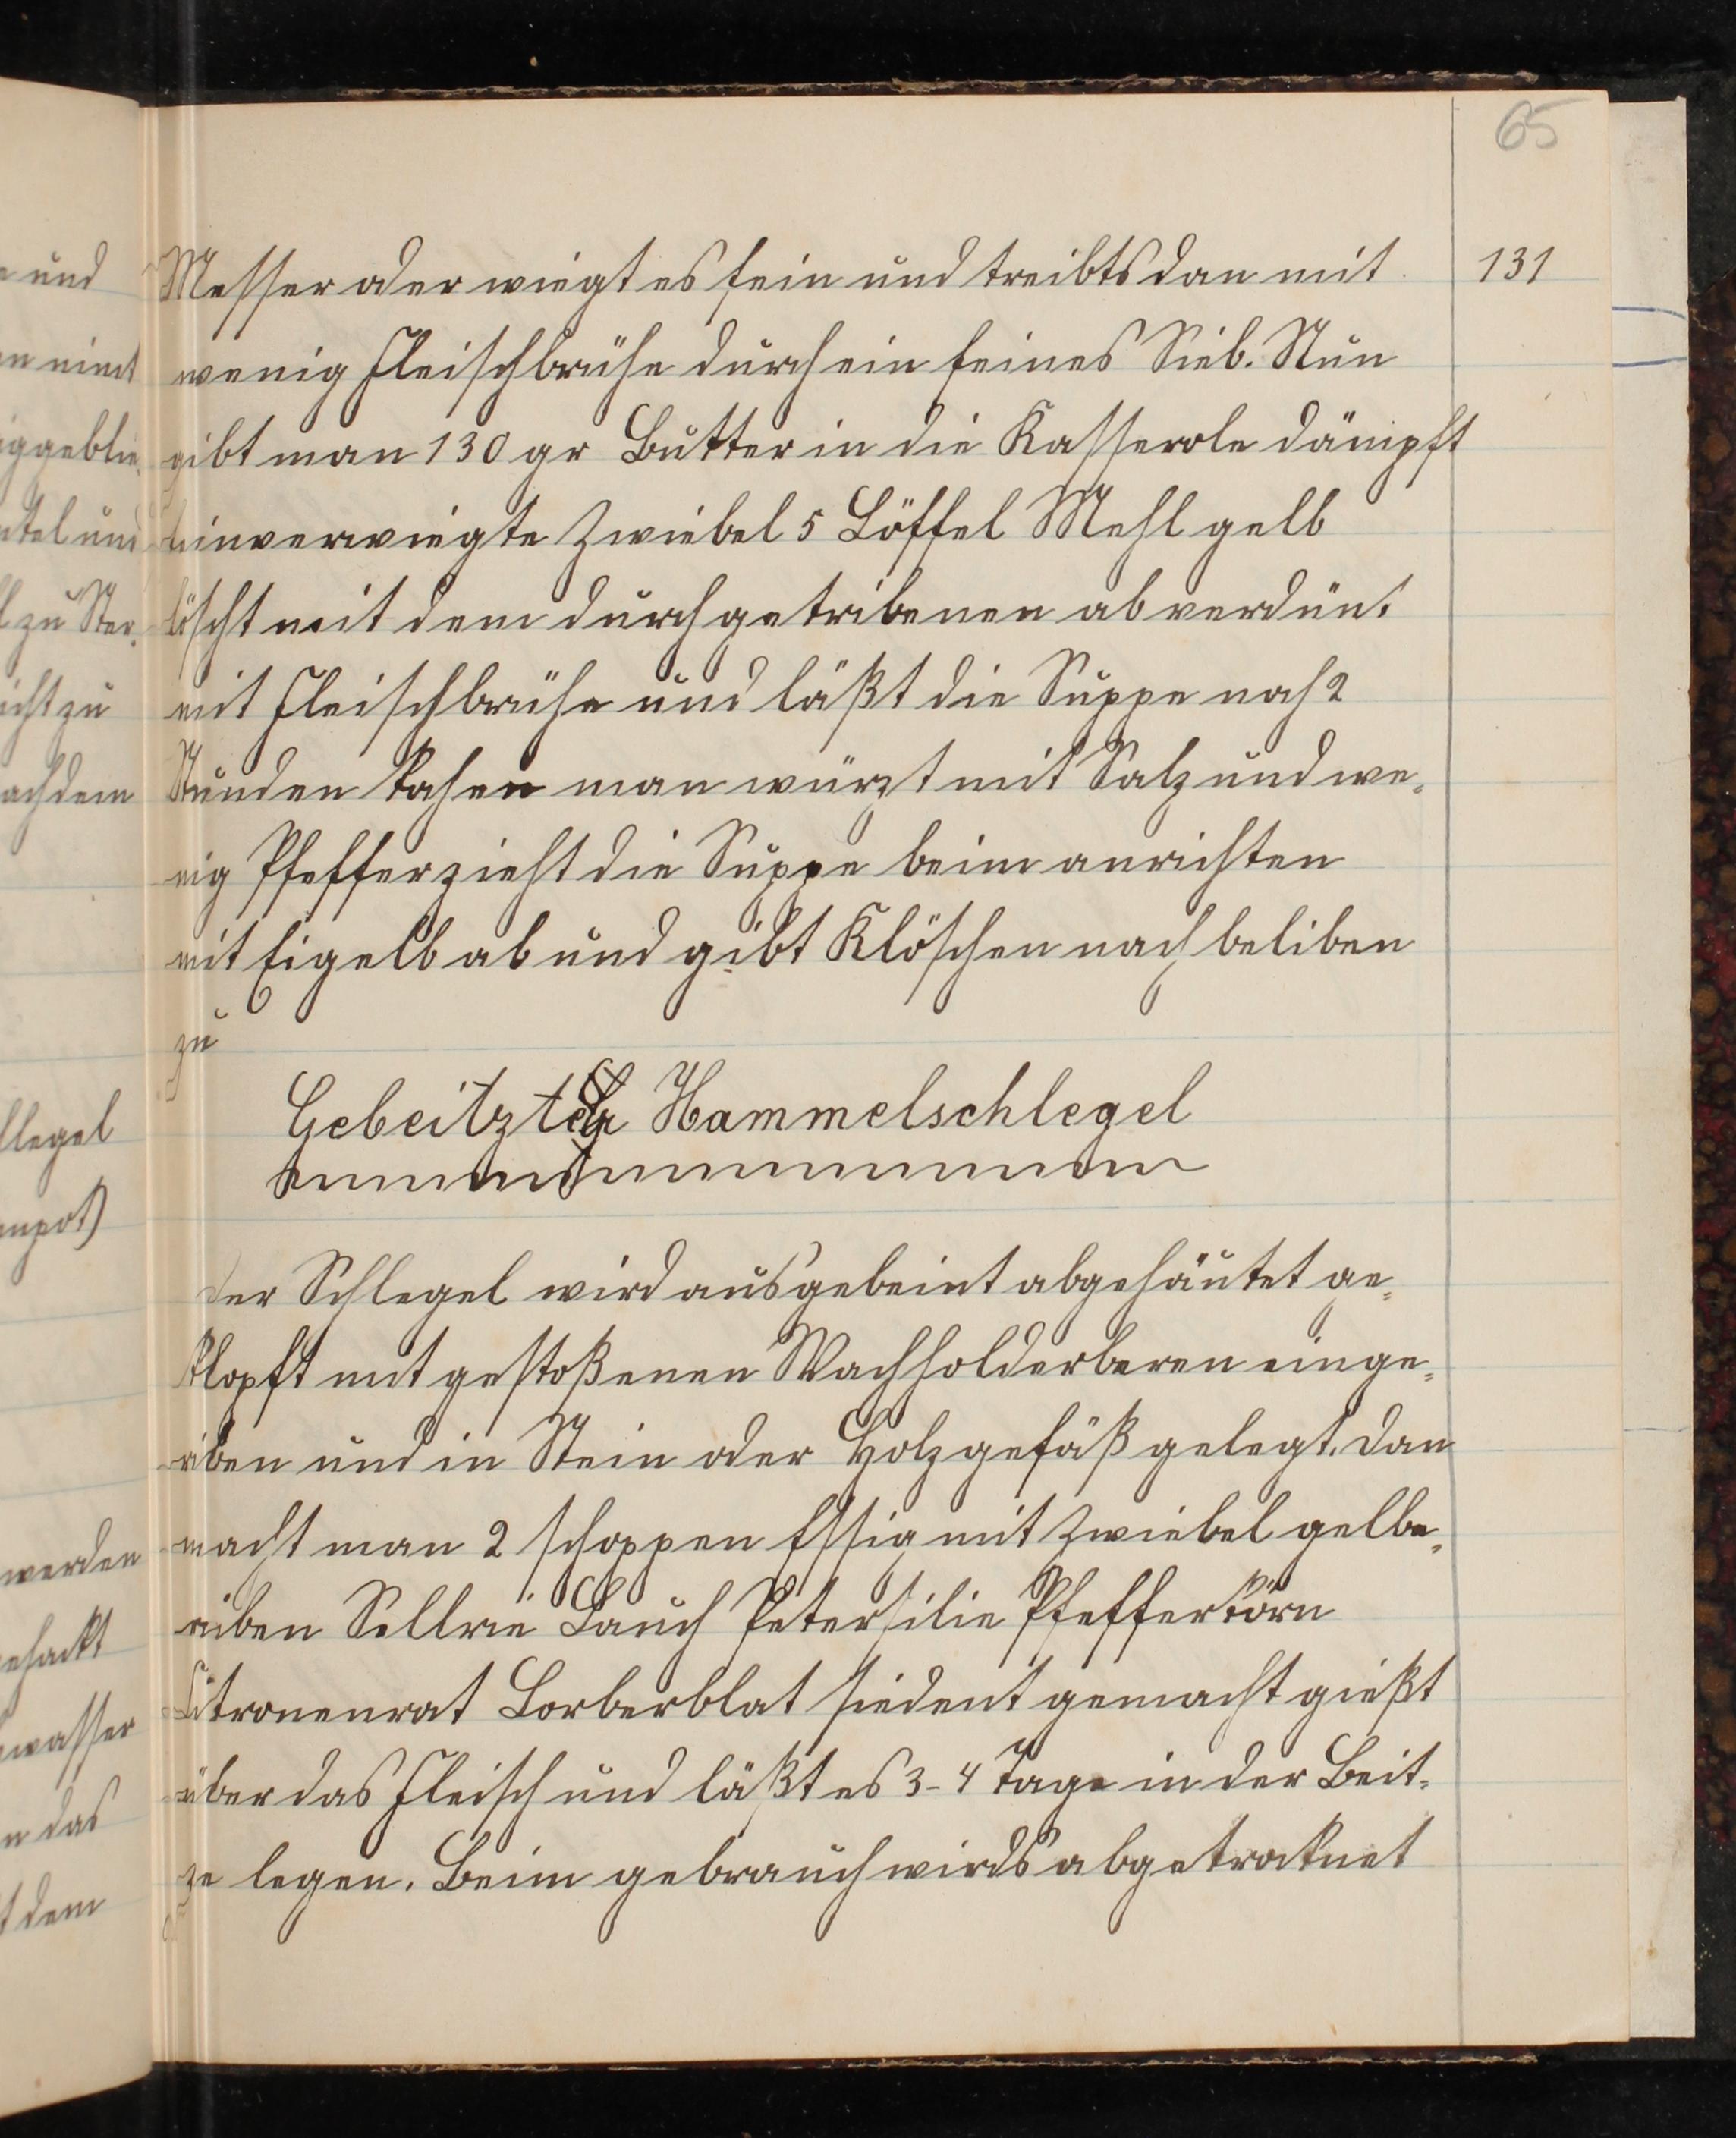 65
131
Messer oder wiegt es fein und treibts dan mit
wenig Fleischbrühe durch ein feines Sieb. Nun
gibt man 130 gr Butter in die Kasserole dämpft
feinverwiegte Zwiebel 5 Löffel Mehl gelb
löscht mit dem durchgetribenen ab verdünt
mit Fleischbrühe und läßt die Suppe noch 2
Stunden kochen man würzt mit Salz und we=
nig Pfeffer zieht die Suppe beim anrichten
mit Eigelb ab und gibt Klöschen nach beliben
zu
Gebeitzter Hammelschlegel
der Schlegel wird ausgebeint abgehäutet ge=
klopft mit gestoßenen Wachholderberen einge=
riben und in Stein oder Holzgefäß gelegt. dan
macht man 2 schoppen Essig mit Zwiebel gelbe=
riben Sellrie Lauch Petersilie Pfefferkörn
Citronenrat Lorberblat siedent gemacht gießt
über das Fleisch und läßt es 3-4 Tage in der Beit=
ze legen. Beim gebrauch wirds abgetroknet